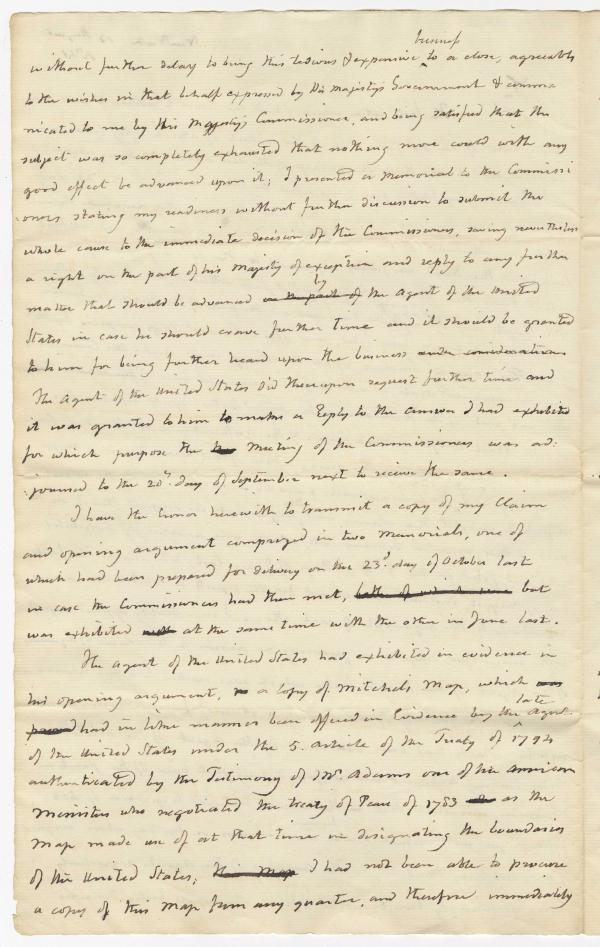 business
without further delay to bring this tedious & expensive ^ to a close, agreeably
to the wishes in that behalf expressed by His Majesty's Government & commu
nicated to me by His Majesty's Commissioner, and being satisfied that the
subject was so completely exhausted that nothing more could with any
good effect be advanced upon it; I presented a Memorial to the Commissi
oners stating my readiness without further discussion to submit the
whole cause to the immediate decision of the Commissioners, saving nevertheless
a right on the part of his Majesty of exception and reply to any further
by
matter that should be advanced on the part of the Agent of the United
States in case he should crave further time and it should be granted
to him for being further heard upon the business under consideration.
The Agent of the United States did thereupon request further time and
it was granted to him to make a Reply to the answer I had exhibited
for which purpose the Meeting of the Commissioners was ad:
:journed to the 20th day of September next to receive the same.
I have the honor herewith to transmit a copy of my Claim
and opening argument comprized in two Memorials, one of
which had been prepared for delivery on the 23d day of October last
in case the Commissioners had then met, both of which were but
was exhibited at the same time with the other in June last.
The Agent of the United States had exhibited in evidence in
his opening argument, a Copy of Mitchel's Map, which was
late
proved had in like manner been offered in Evidence by the ^ Agent
of the United States under the 5. Article of the Treaty of 1794
authenticated by the Testimony of Mr. Adams one of the American
Ministers who negotiated the treaty of Peace of 1783 as the
Map made use of at that time in designating the boundaries
of the United States; this Map I had not been able to procure
a copy of this Map from any quarter, and therefore immediately